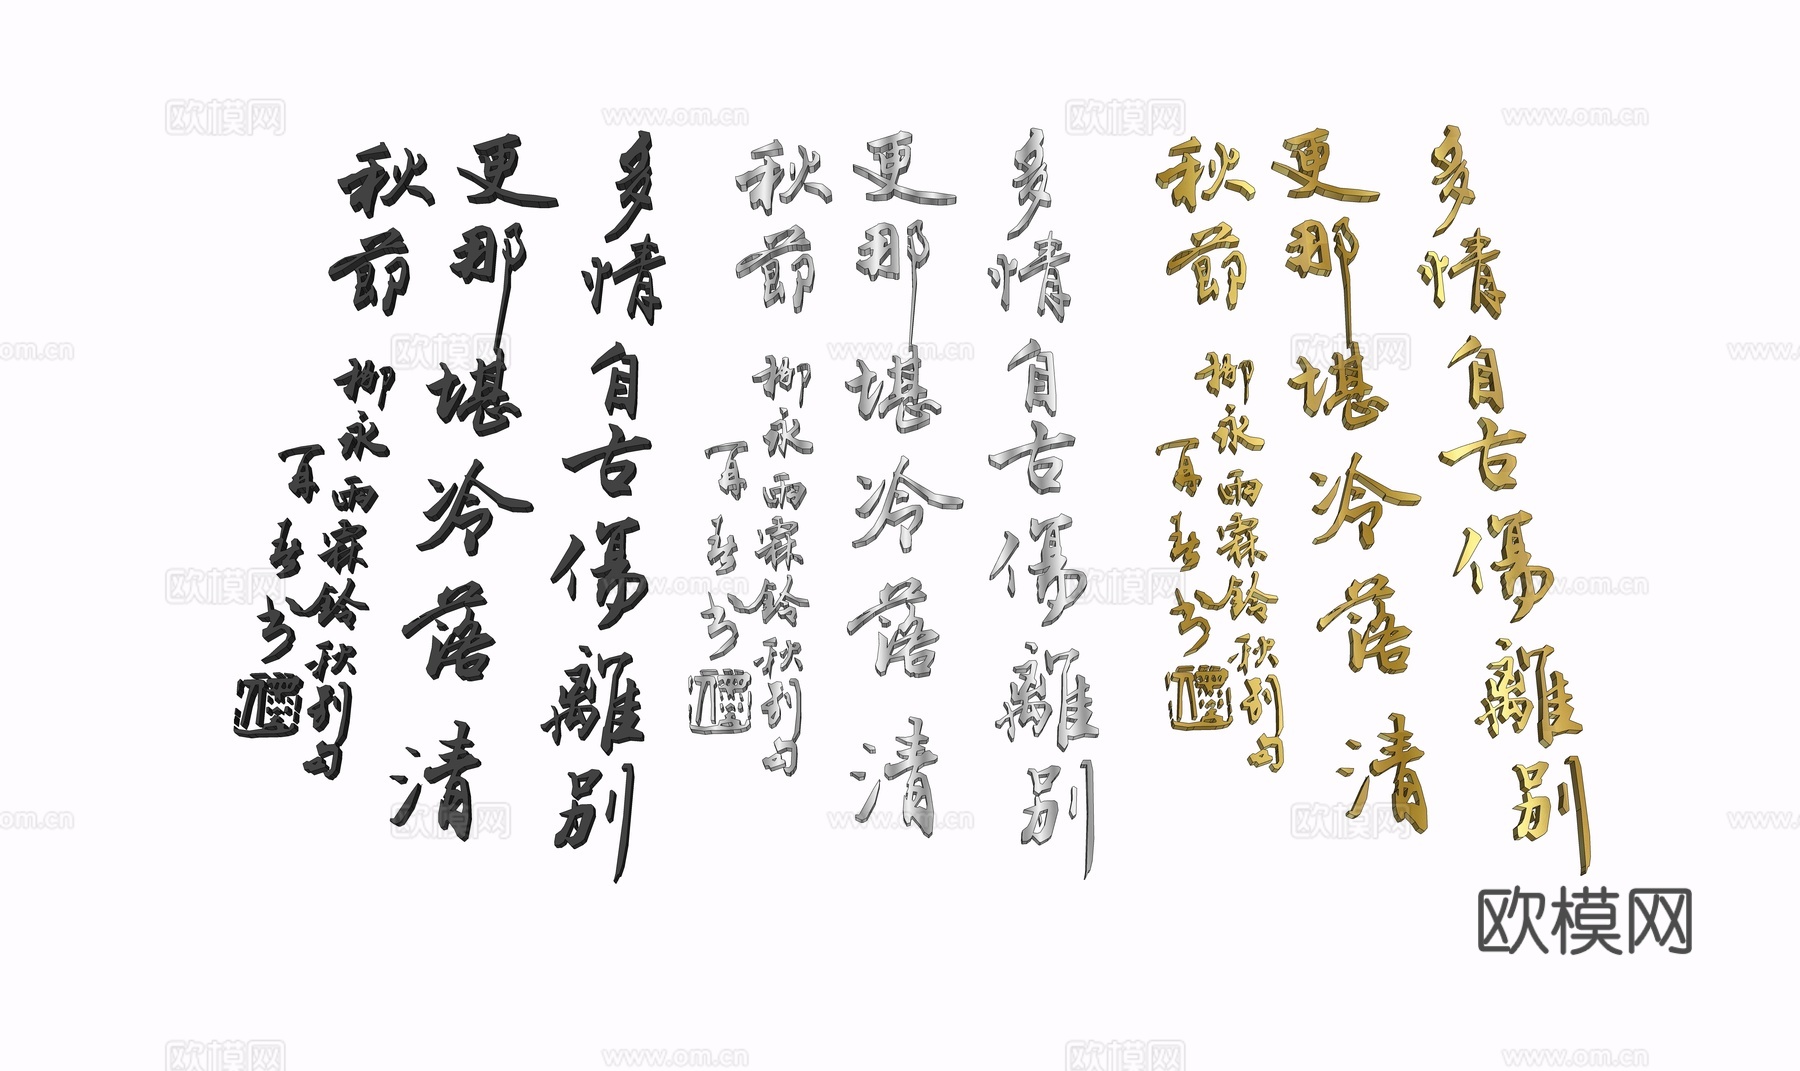 多情自古傷離別
更那堪冷落清
秋節
柳永雨霖鈴秋别句
多情自古傷離別
更那堪冷落清
秋節
柳永雨霖鈴秋别句
多情自古傷離別
更那堪冷落清
秋節
柳永雨霖鈴秋别句
欧模网
www.om.cn